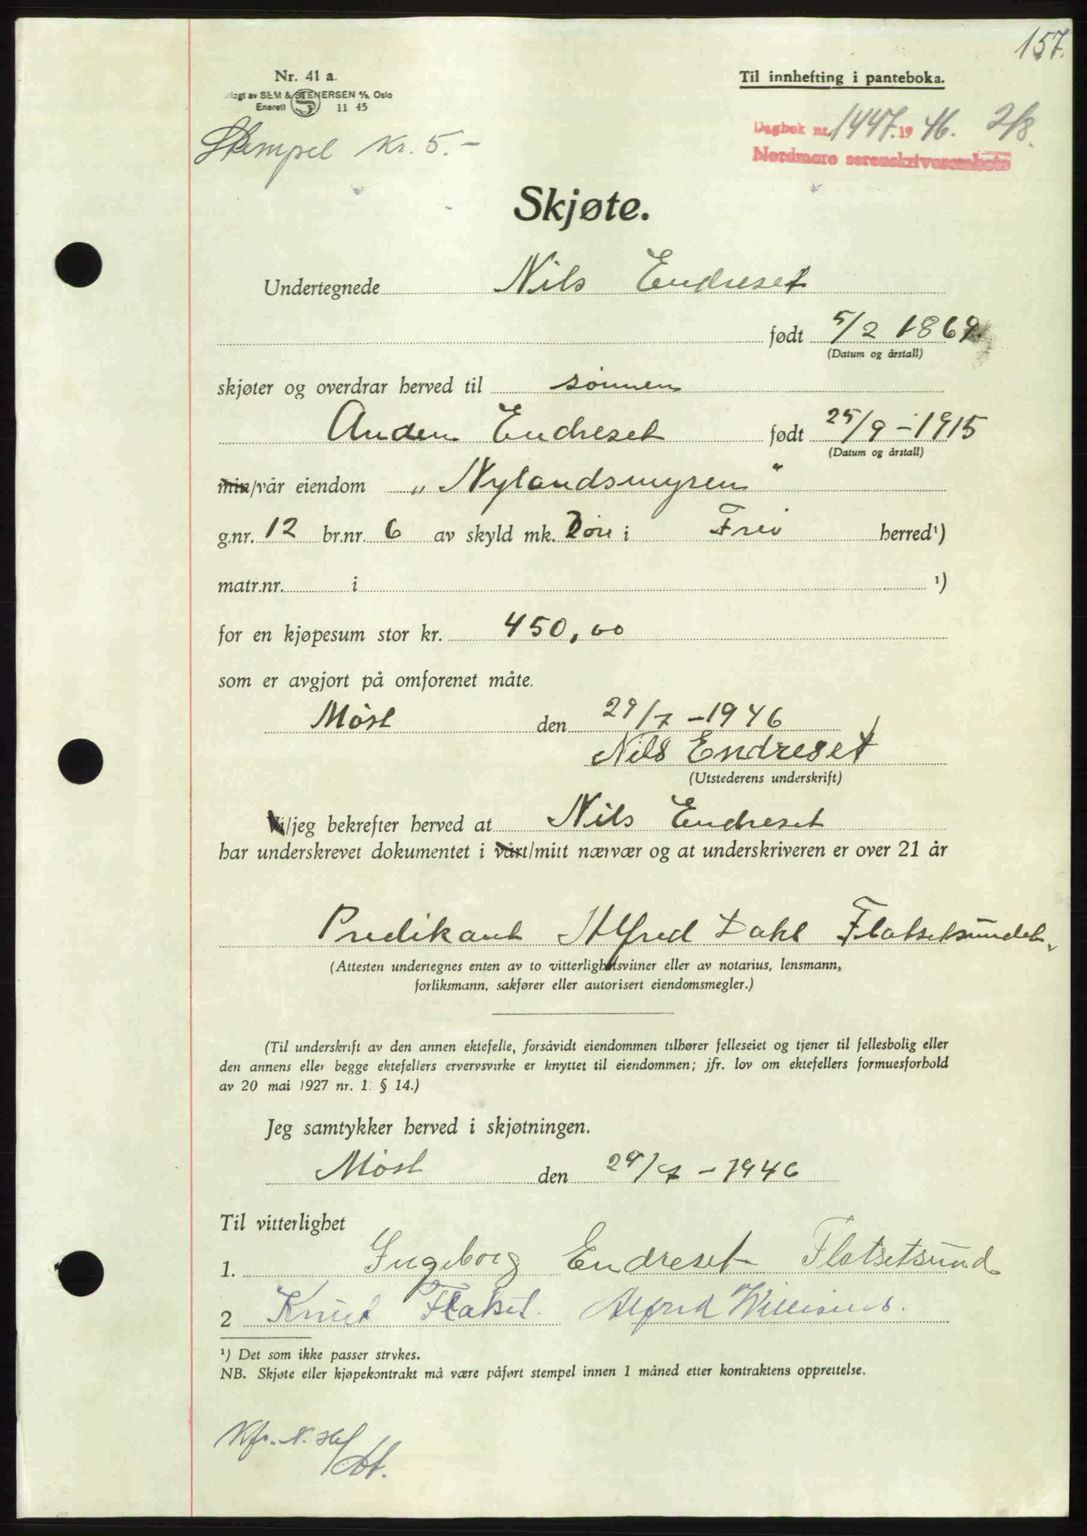 157.
Nr. 41 a.
Til innhefting i panteboka.
av SEM & STENERSEN A/S, Oslo
Enerett S 11 45
Dagbok nr. 1447. 19 46. 2/8.
Nordmøre sorenskriverembete
Stempel Kr. 5.-
Skjøte.
Undertegnede Nils Endreset
født 5/2 1869.
(Datum og årstall)
skjøter og overdrar herved til sønnen
Anders Endreset født 25/9 - 1915
(Datum og årstall)
min/vår eiendom „Nylandsmyren"
g.nr. 12 br.nr. 6 av skyld mk. 7 øre i Frei herred¹)
matr.nr. i ¹)
for en kjøpesum stor kr. 450,00
som er avgjort på omforenet måte.
Møst den 29/7 -1946
Nils Endreset
(Utstederens underskrift)
Vi/jeg bekrefter herved at Nils Endreset
har underskrevet dokumentet i vårt/mitt nærvær og at underskriveren er over 21 år
Predikant Alfred Dahl Flatsetsundet.
(Attesten undertegnes enten av to vitterlighetsvitner eller av notarius, lensmann,
forliksmann, sakfører eller autorisert eiendomsmegler.)
(Til underskrift av den annen ektefelle, forsåvidt eiendommen tilhører felleseiet og tjener til fellesbolig eller
den annens eller begge ektefellers ervervsvirke er knyttet til eiendommen; jfr. lov om ektefellers formuesforhold
av 20 mai 1927 nr. 1 § 14.)
Jeg samtykker herved i skjøtningen.
Møst den 29/7 -1946
Til vitterlighet
1. Ingeborg Endreset Flatsetsund
2 Knut Flatset. Alfred
¹) Det som ikke passer strykes.
NB. Skjøte eller kjøpekontrakt må være påført stempel innen 1 måned etter kontraktens opprettelse.